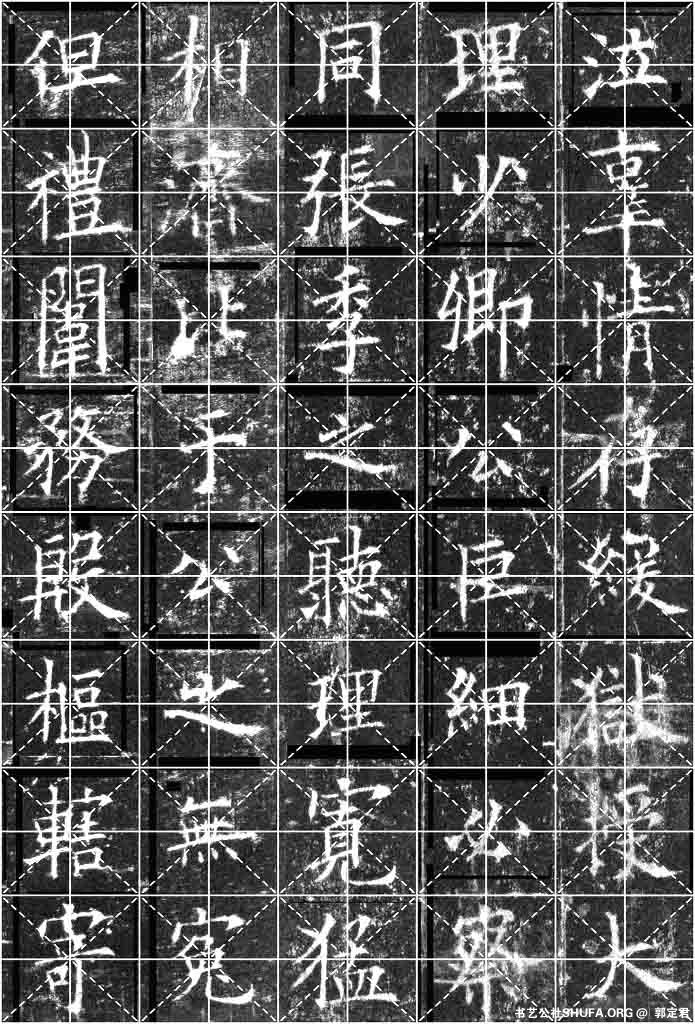 泣辜情存緩獄授大
理少卿公巨細必察
同張季之聽理寬猛
相濟比于公之無寃
但禮闈務殷樞轄寄
书艺公社SHUFA.ORG @ 郭定君